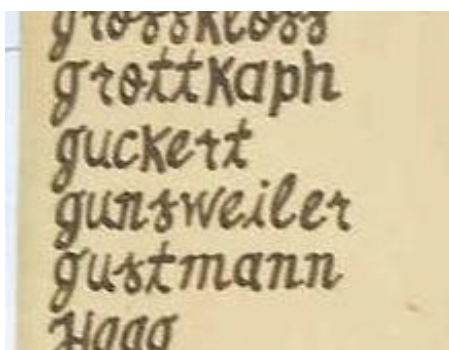 grosskloss
grottkaph
guckert
gunsweiler
gustmann
Haag